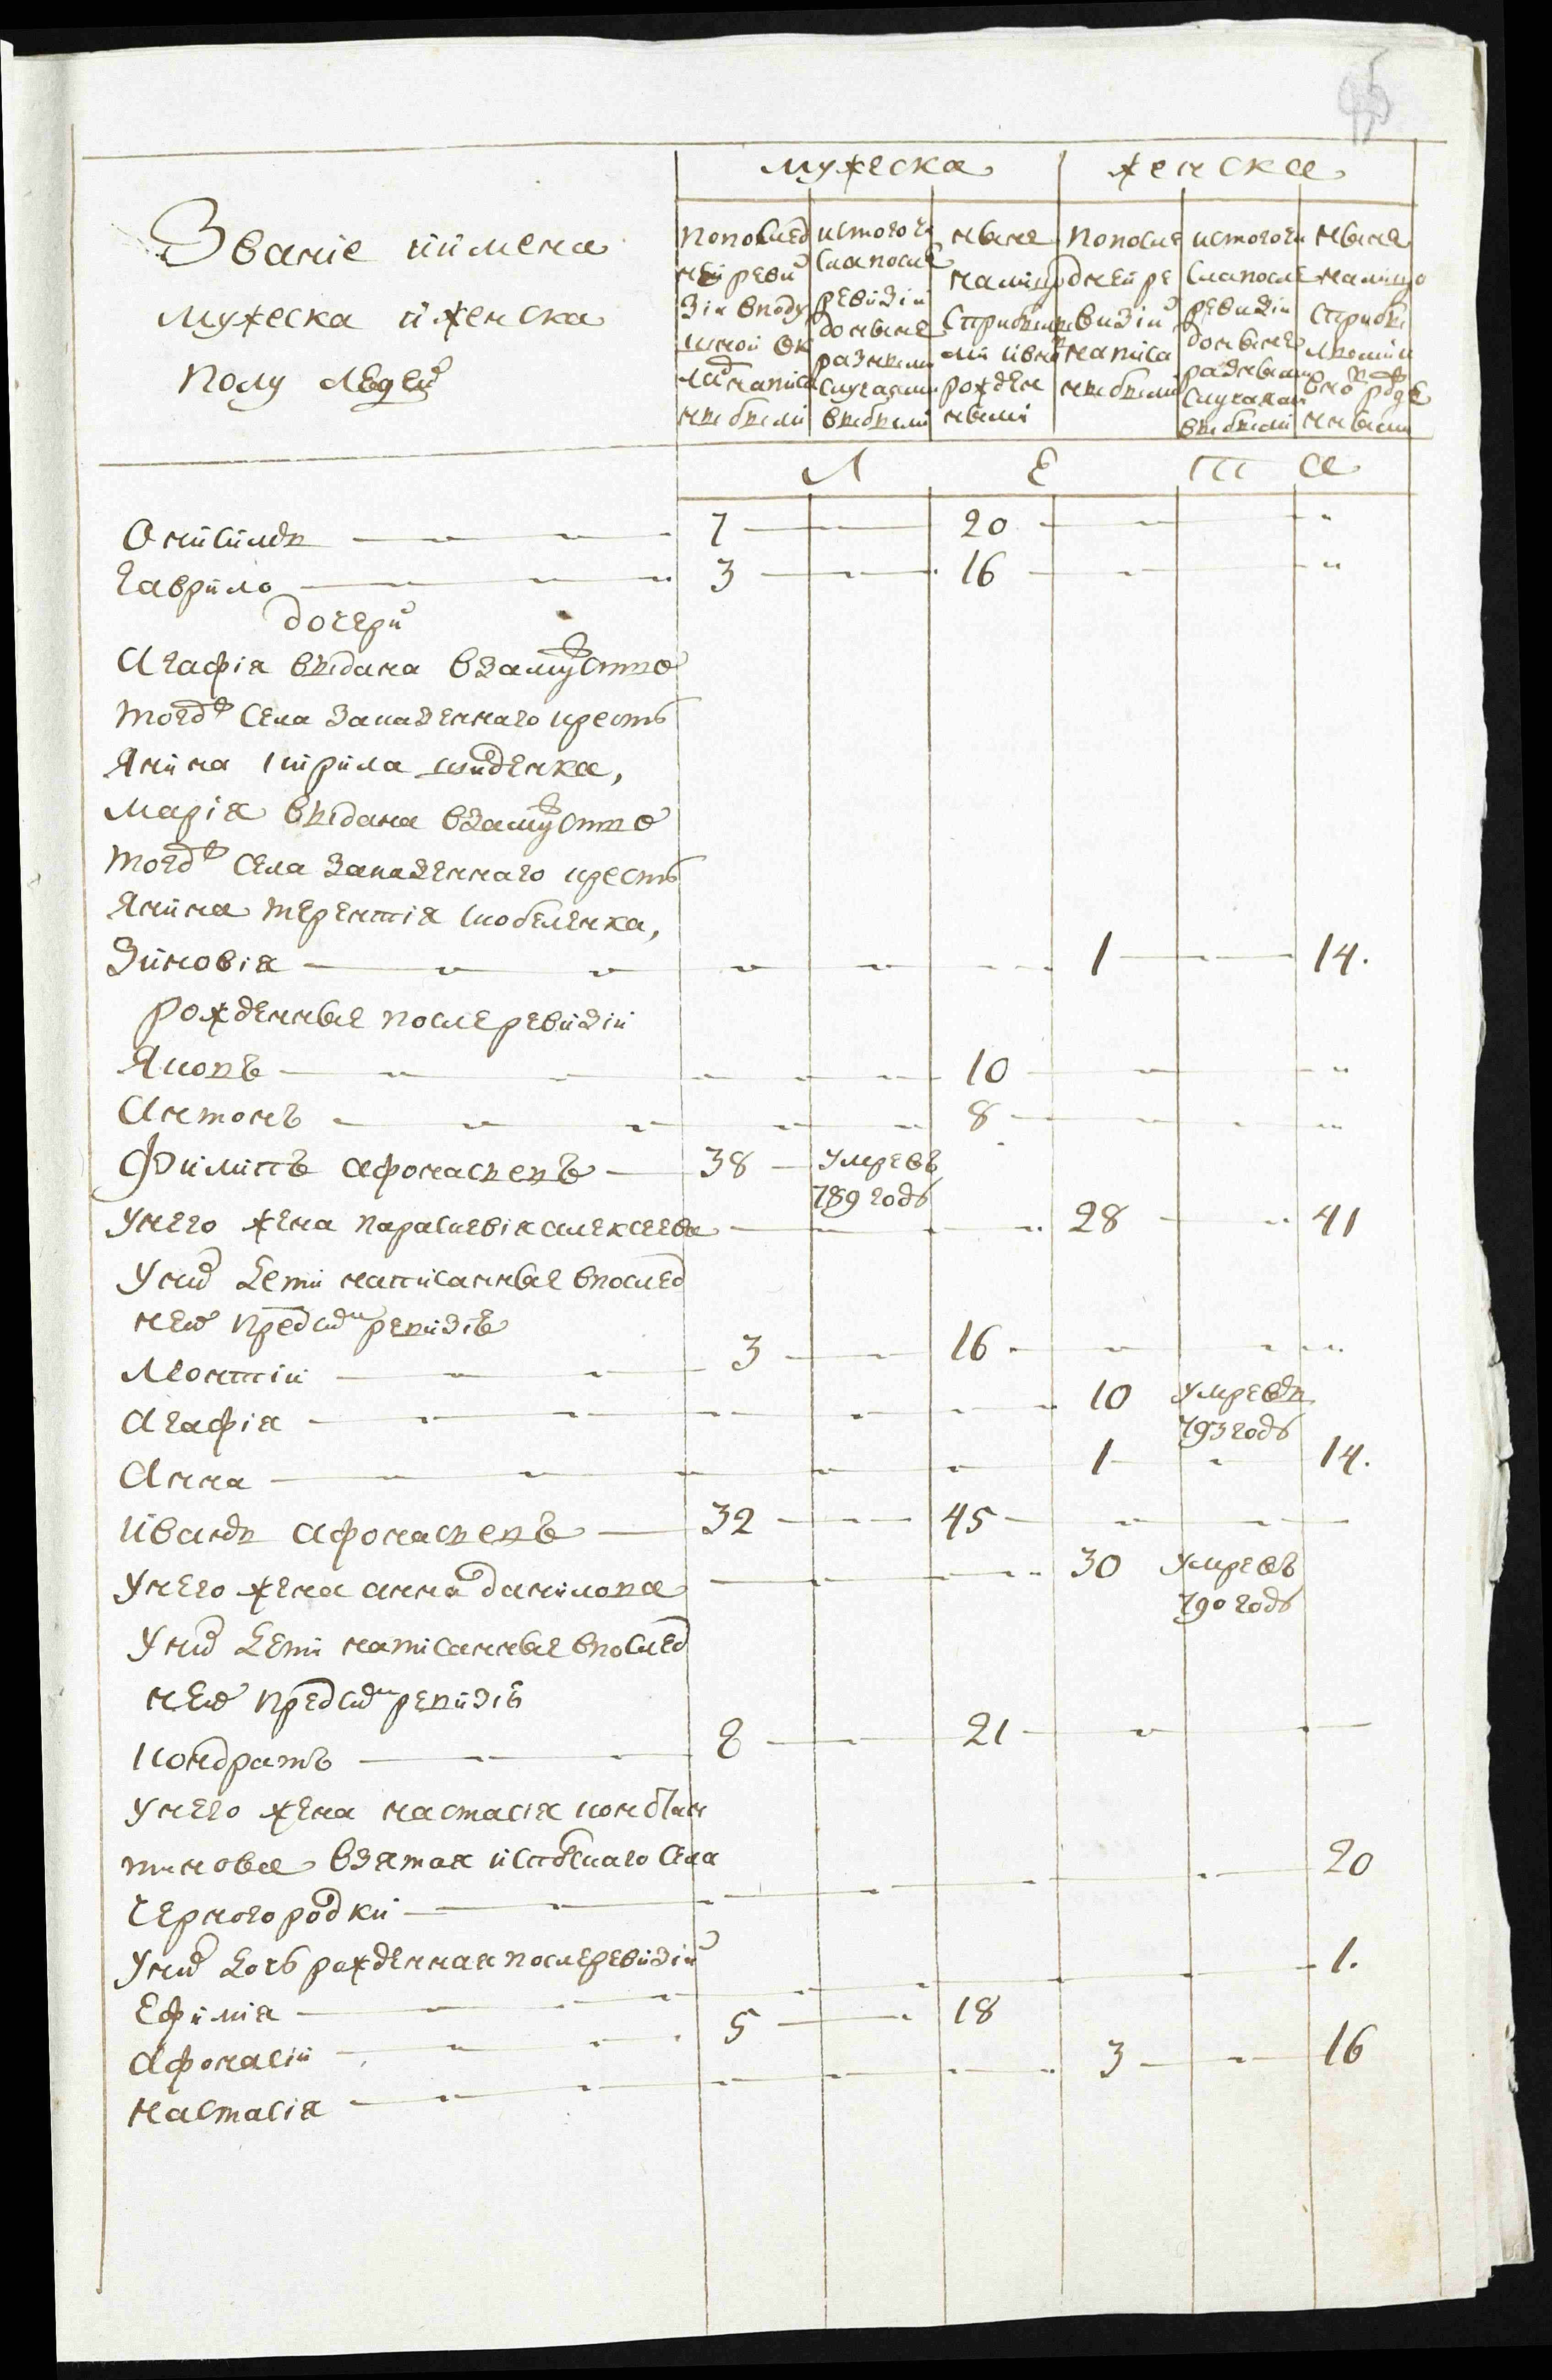 45
мужеска женска
Званіе и имена
мужеска и женска
полу людей
по послед ней ревизіи в подушной оклад написаны были
ис того числа после ревизіи до ныне разными случаями выбыли
ныне на лицо с прибылыми и вновь рожденными
по последней ревизіи написаны были
ис того числа после ревизіи до ныне разными случаями выбыли
ныне на лицо с прибылыми и вновь рожденными
Л Е Т А
Онисимъ 7 20
Гаврило 3 16
дочери
Агафія выдана взамуство
тогож села казеннаго кресть
янина Кирила
Марія выдана взамуство
тогож села казеннаго кресть
янина Терентія
Зиновія 1 14.
рожденные после ревизіи
Яковъ 10
Антонъ 8
Филипъ Афонасьевъ 38 умре въ
789 годь
у него жена Парасковія Алексеева 28 41
у них дети написанные в послед
ней пред сим ревизіе
Леонтій 3 16
Агафія 10 умре въ
793 годь
Анна 1 14.
Иванъ Афонасьевъ 32 45
у него жена Анна Данилова 30 умре въ
790 годь
у них дети написанные в послед
ней пред сим ревизіе
Кондратъ 8 21
у него жена Настасія Констан
тинова взятая села
Черногородки 20
у них дочь рожденная после ревизіи
Ефимія 1.
Афонасій 5 18
Настасія 3 16